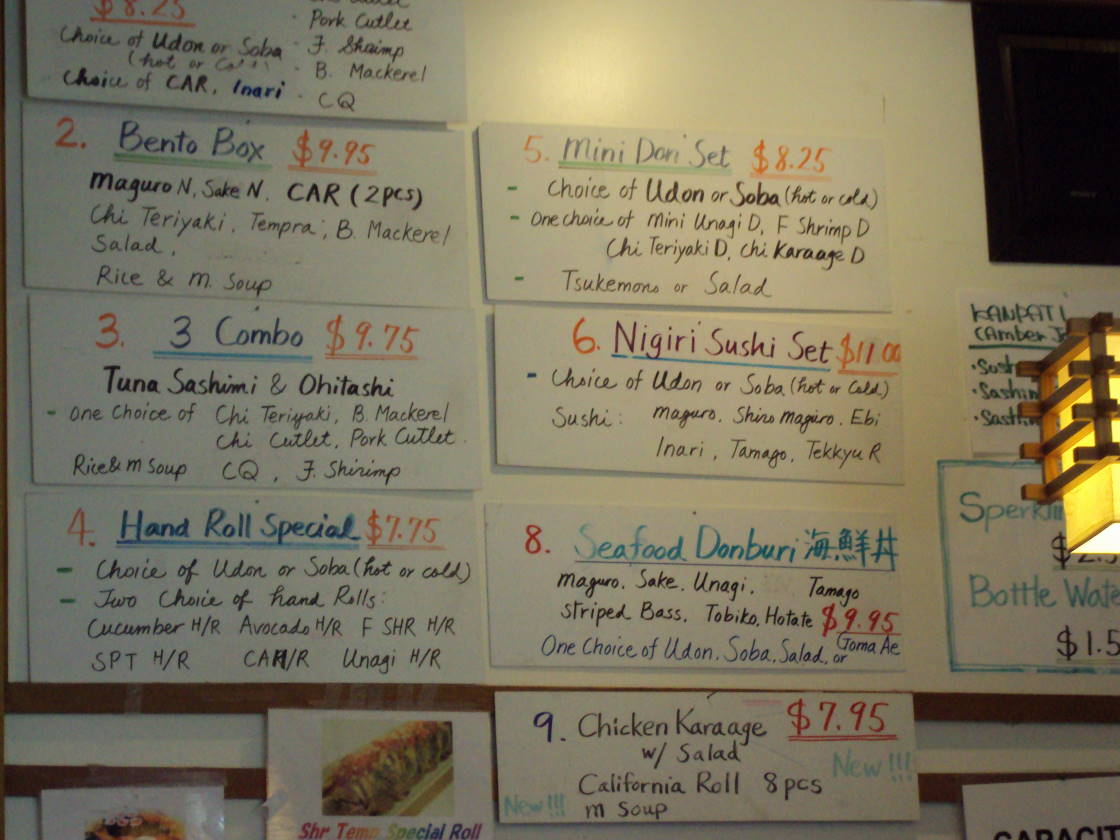 $8.25
Choice of Udon or Soba
(hot or Cold)
Choice of CAR, Inari
· Pork Cutlet
· F. Shrimp
· B. Mackerel
· CQ
2. Bento Box $9.95
maguro N, Sake N. CAR (2pcs)
Chi Teriyaki, Tempra, B. Mackerel
Salad,
Rice & m. Soup
3. 3 Combo $9.75
Tuna Sashimi & Ohitashi
- one Choice of Chi Teriyaki, B. Mackerel
Chi Cutlet, Pork Cutlet.
Rice & m Soup CQ, F. Shirimp
4. Hand Roll Special $7.75
- Choice of Udon or Soba (hot or cold)
- Two Choice of hand Rolls:
Cucumber H/R Avocado H/R F SHR H/R
SPT H/R CAR H/R Unagi H/R
5. Mini Don Set $8.25
- Choice of Udon or Soba (hot or cold)
- One choice of Mini Unagi D, F Shrimp D
Chi Teriyaki D, Chi Karaage D
- Tsukemono or Salad
6. Nigiri Sushi Set $11.00
- Choice of Udon or Soba (hot or Cold)
Sushi: maguro, Shiro maguro, Ebi
Inari, Tamago, Tekkyu R
8. Seafood Donburi 海鮮丼
maguro, Sake, Unagi, Tamago
striped Bass, Tobiko, Hotate $9.95
One Choice of Udon, Soba, Salad, or Goma Ae
9. Chicken Karaage $7.95
w/ Salad
California Roll 8pcs
m Soup
New!!!
New!!!
KANPATI
(Amber J
·Sush
·Sashim
·Sash
Sperkli
$2.5
Bottle Wate
$1.5
Shr Temp Special Roll
CAPACIT
SONY